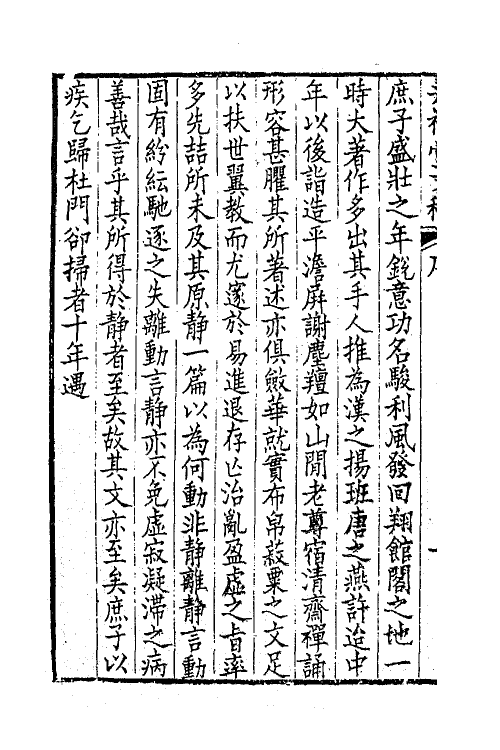 庶子盛壯之年銳意功名駿利風發回翔館閣之地一
時大著作多出其手人推為漢之揚班唐之燕許迨中
年以後詣造平澹屏謝塵羶如山閒老尊宿清齋禪誦
形容甚臞其所著述亦俱斂華就實布帛菽粟之文足
以扶世翼教而尤邃於易進退存亡治亂盈虛之旨率
多先喆所未及其原靜一篇以為何動非靜離靜言動
固有紛紜馳逐之失離動言靜亦不免虛寂凝滯之病
善哉言乎其所得於靜者至矣故其文亦至矣庶子以
疾乞歸杜門卻掃者十年遇